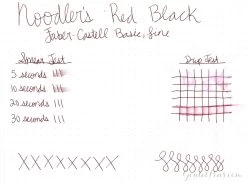 Noodler's Red Black
Faber-Castell Basic, fine
Smear Test
Drip Test
5 seconds
10 seconds
20 seconds
30 seconds
XXXXXXXX